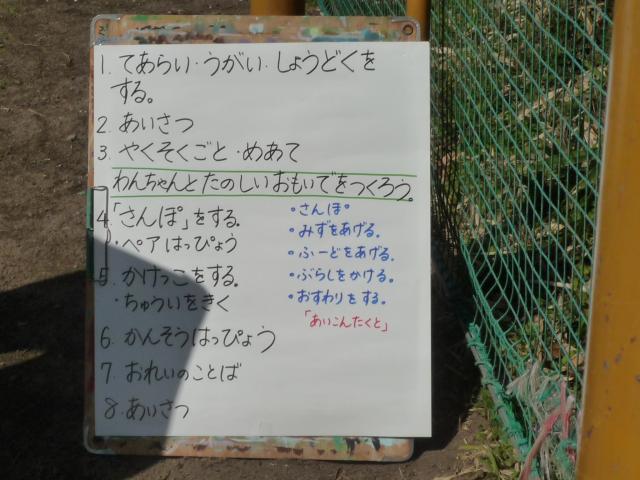 1. てあらい・うがい・しょうどくを
する。
2. あいさつ
3. やくそくごと・めあて
わんちゃんとたのしいおもいでをつくろう。
4.「さんぽ」をする。
・ペアはっぴょう
5. かけっこをする。
・ちゅういをきく
6. かんそうはっぴょう
7. おれいのことば
8. あいさつ
・さんぽ
・みずをあげる。
・ふーどをあげる。
・ぶらしをかける。
・おすわりをする。
「あいこんたくと」